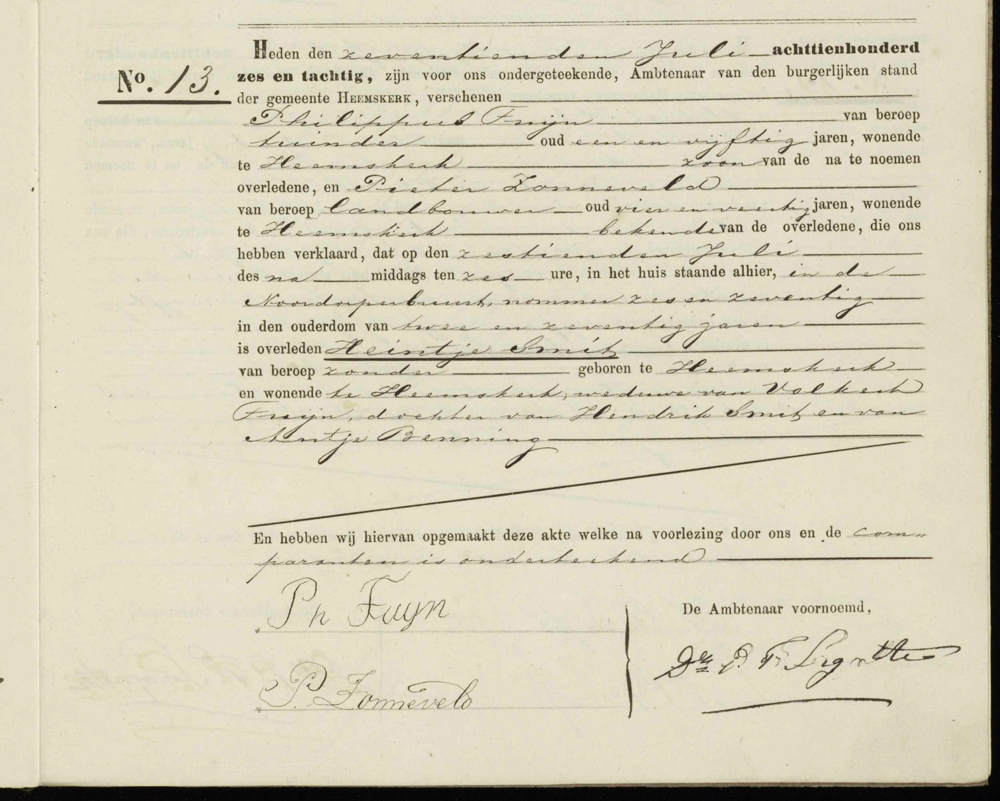 Heden den zeventienden Juli achttienhonderd
No. 13. zes en tachtig, zijn voor ons ondergeteekende, Ambtenaar van den burgerlijken stand
der gemeente HEEMSKERK, verschenen
Philippus Fuijn van beroep
tuinder oud een en vijftig jaren, wonende
te Heemskerk zoon van de na te noemen
overledene, en Pieter Zonneveld
van beroep landbouwer oud vier en veertig jaren, wonende
te Heemskerk bekende van de overledene, die ons
hebben verklaard, dat op den zestienden Juli
des na middags ten zes ure, in het huis staande alhier, in de
Noordorperbuurt, nommer zes en zeventig
in den ouderdom van twee en zeventig jaren
is overleden Heintje Smit
van beroep zonder geboren te Heemskerk
en wonende te Heemskerk, weduwe van Volkert
Fuijn, dochter van Hendrik Smit en van
Antje Benning
En hebben wij hiervan opgemaakt deze akte welke na voorlezing door ons en de com„
paranten is onderteekend
Ph Fuyn
De Ambtenaar voornoemd,
P. Zonneveld